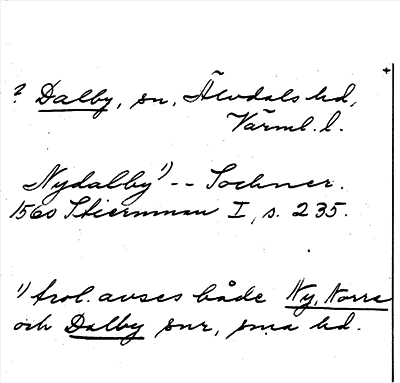 ? Dalby, sn, Älvdals hd,
Värml. l.
Nydalby¹) -- Sochner.
1560 Stiernman I, s. 235.
¹) trol. avses både Ny, Norra
och Dalby snr, sma hd.